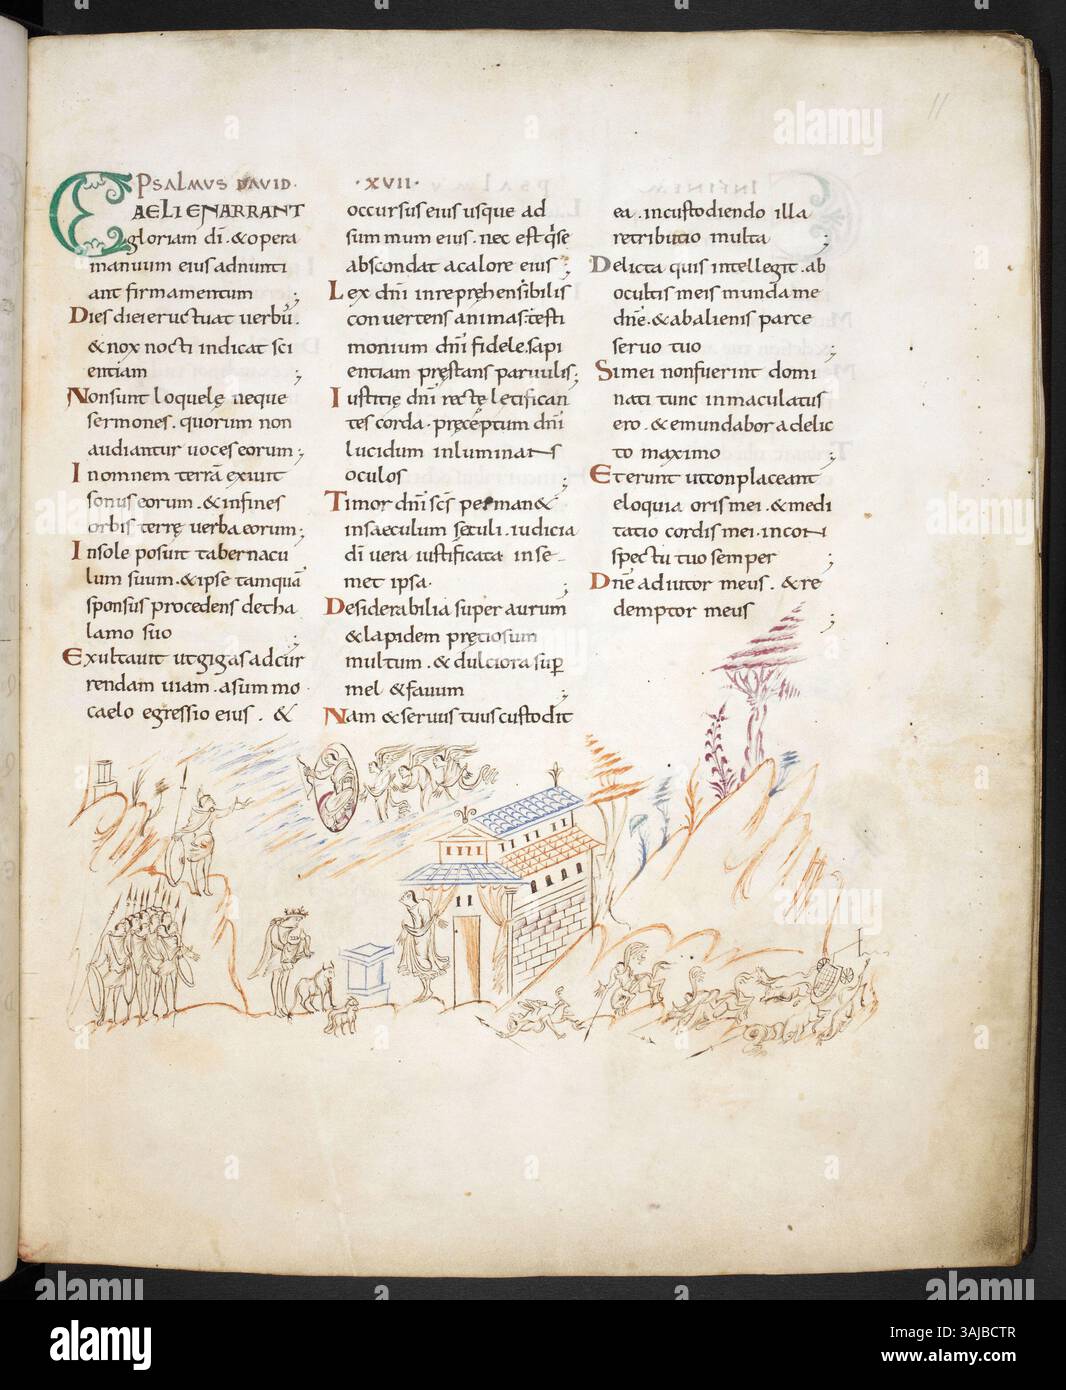 11
PSALMUS DAVID · XVII ·
CAELI ENARRANT
gloriam dī . & opera
manuum eius adnunti
ant firmamentum ;
Dies diei eructuat uerbū .
& nox nocti indicat sci
entiam ;
Non sunt loquelę neque
sermones . quorum non
audiantur uoces eorum ;
In omnem terrā exiuit
sonus eorum . & in fines
orbis terrę uerba eorum ;
In sole posuit tabernacu
lum suum . & ipse tamquā
sponsus procedens de tha
lamo suo ;
Exultauit ut gigas ad cur
rendam uiam . a summo
caelo egressio eius . &
occursus eius usque ad
summum eius . nec est q̇ se
abscondat a calore eius ;
Lex dn̄i inreprehensibilis
conuertens animas . testi
monium dn̄i fidele . sapi
entiam pręstans paruulis ;
Iustitię dn̄i rectę letifican
tes corda . pręceptum dn̄i
lucidum inluminans
oculos ;
Timor dn̄i sc̄s perman&
in saeculum sęculi . iudicia
dī uera iustificata in se
met ipsa . ;
Desiderabilia super aurum
& lapidem pretiosum
multum . & dulciora sup̄
mel & fauum ;
Nam & seruus tuus custodit
ea . in custodiendo illa
retributio multa ;
Delicta quis intellegit . ab
ocultis meis munda me
dn̄e . & ab alienis parce
seruo tuo ;
Si mei non fuerint domi
nati tunc inmaculatus
ero . & emundabor a delic
to maximo ;
Et erunt ut conplaceant
eloquia oris mei . & medi
tatio cordis mei . in con
spectu tuo semper ;
Dn̄e adiutor meus . & re
demptor meus ;
alamy
Image ID: 3AJBCTR
www.alamy.com